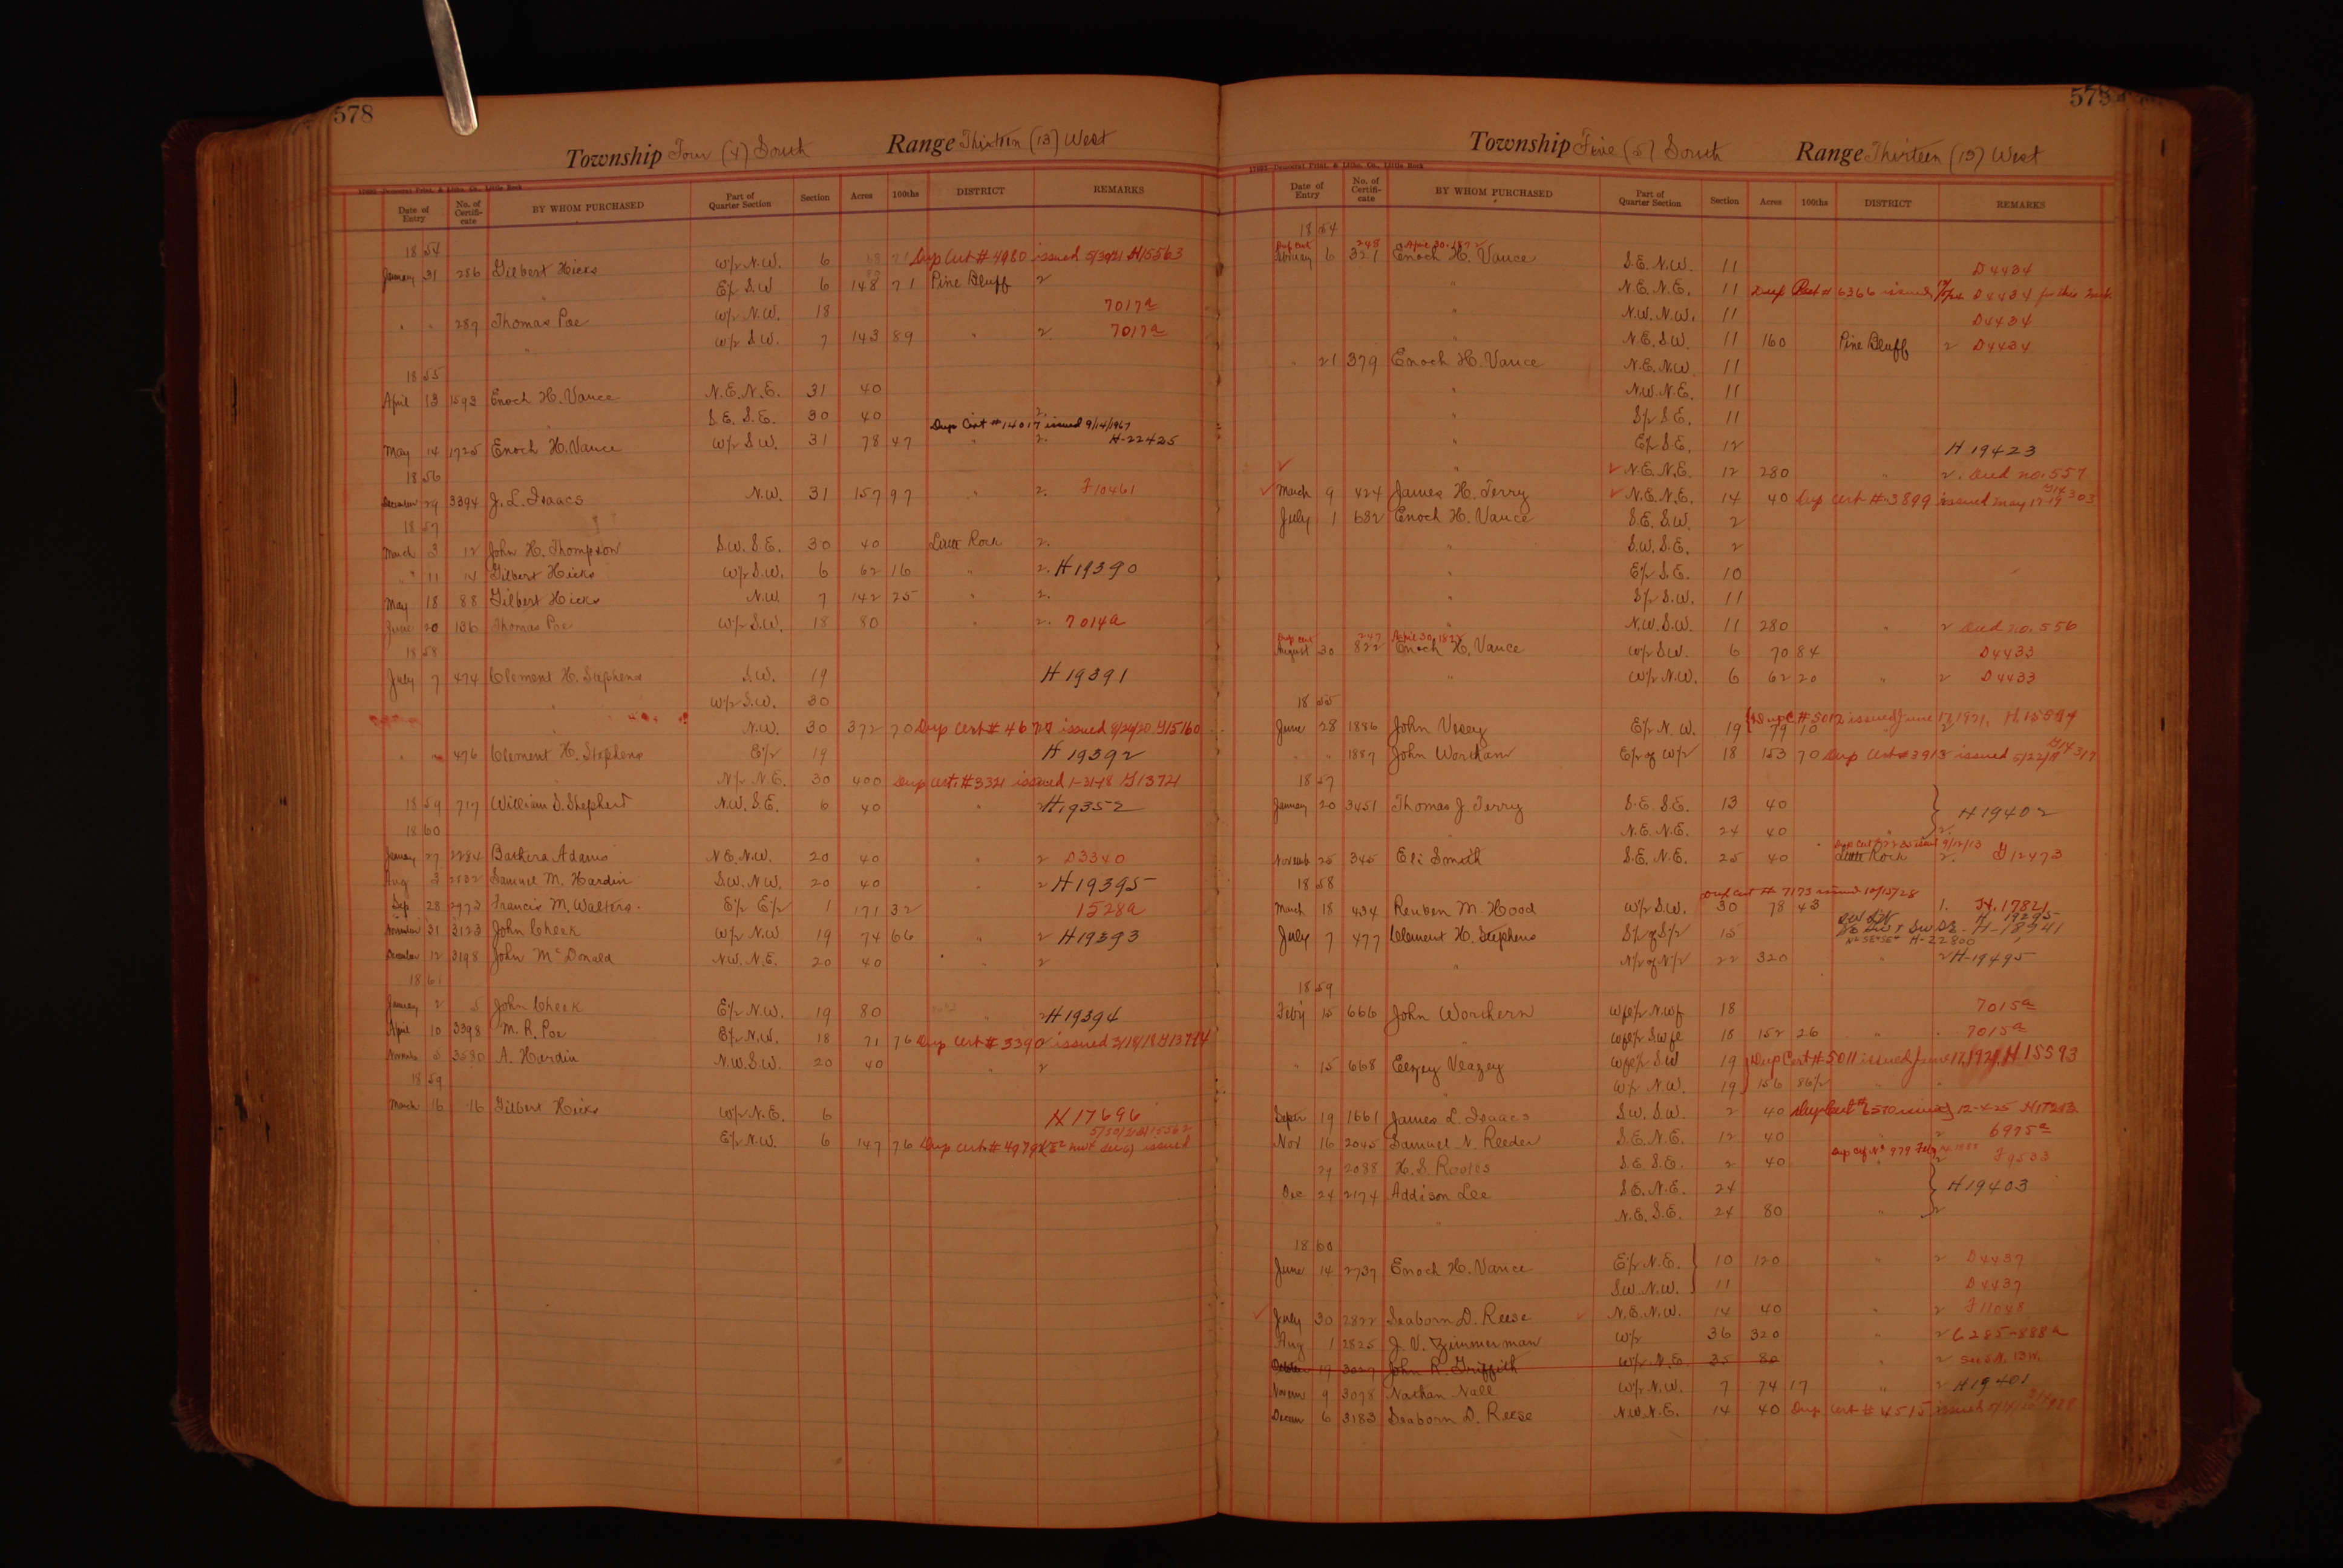 578
Township Four (4) South Range Thirteen (13) West
Date of Entry No. of Certifi-cate BY WHOM PURCHASED Part of Quarter Section Section Acres 100ths DISTRICT REMARKS
1854
January 31 286 Gilbert Hicks W/2 N.W. 6 Dup Cert # 4980 issued H15563
" E/2 S.W 6 148 71 Pine Bluff 2
" " 287 Thomas Poe W/2 N.W. 18 7017a
" W/2 S.W. 7 143 89 " 2. 7017a
1855
April 13 1593 Enoch H. Vance N.E. N.E. 31 40
" S.E. S.E. 30 40 2.
Dup Cert # 14017 issued 9/14/1967
May 14 1725 Enoch H. Vance W/2 S.W. 31 78 47 " 2. H-22425
1856
December 29 3394 J. L. Isaacs N.W. 31 157 97 " 2. F10461
1857
March 3 12 John H. Thompson S.W. S.E. 30 40 Little Rock 2.
" 11 14 Gilbert Hicks W/2 S.W. 6 62 16 " 2. H19390
May 18 88 Gilbert Hicks N.W 7 142 25 " 2.
June 20 136 Thomas Poe W/2 S.W. 18 80 " 2. 7014a
1858
July 7 474 Clement H. Stephens S.W. 19 H 19391
" W/2 S.W. 30
N.W. 30 372 70 Dup Cert # 4677 issued 9/29/20 G15160
" " 476 Clement H. Stephens E/2 19 H 19392
" N/2 N.E. 30 400 Dup Cert. # 3321 issued 1-31-18 G13721
1859 717 William D. Shepherd N.W. S.E. 6 40 " 2 H19352
1860
January 27 2284 Bathira Adams N.E. N.W. 20 40 " 2 D3340
Aug 3 2832 Samuel M. Hardin S.W. N.W. 20 40 " 2 H19395
Sep 28 2973 Francis M. Walters E/2 E/2 1 171 32 1528a
November 31 3123 John Cheek W/2 N.W 19 74 66 " 2 H19393
December 12 3198 John McDonald N.W. N.E. 20 40 " 2
1861
January 2 5 John Cheek E/2 N.W. 19 80 " 2 H19394
April 10 3398 M. R. Poe E/2 N.W. 18 71 76 Dup Cert # 3390 issued 3/18/18 G13774
November 5 3580 A. Hardin N.W. S.W. 20 40 " 2
1859
March 16 16 Gilbert Hicks W/2 N.E. 6 H17696
E/2 N.W. 6 147 76 Dup Cert. # 4979 issued
Township Five (5) South Range Thirteen (13) West
Date of Entry No. of Certifi-cate BY WHOM PURCHASED Part of Quarter Section Section Acres 100ths DISTRICT REMARKS
1854
Dup Cert 248 April 30, 1872
February 6 321 Enoch H. Vance S.E. N.W. 11 D4434
" N.E. N.E. 11 Dup Rect # 6366 issued D4434 for this
" N.W. N.W. 11 D4434
" N.E. S.W. 11 160 Pine Bluff 2 D4434
" 21 379 Enoch H. Vance N.E. N.W. 11
" N.W. N.E. 11
" S/2 S.E. 11
" E/2 S.E. 12 H 19423
" N.E. N.E. 12 280 " 2. Aud no. 557
March 9 424 James H. Terry N.E. N.E. 14 40 Dup Cert # 3899 issued May 17
July 1 632 Enoch H. Vance S.E. S.W. 2
" S.W. S.E. 2
" E/2 S.E. 10
" S/2 S.W. 11
" N.W. S.W. 11 280 " 2 Aud no. 556
Dup Cert 247 April 30, 1872
August 30 822 Enoch H. Vance W/2 S.W. 6 70 84 D4433
" W/2 N.W. 6 62 20 " 2 D4433
1855
Dup C # 5012 issued June 17, 1921,
June 28 1886 John Veeey E/2 N.W. 19 79 10 " 2
" " 1887 John Worcham E/2 of W/2 18 153 70 Dup Cert # 3913 issued 5/22/18
1857
January 20 3451 Thomas J. Terry S.E. S.E. 13 40 H 19402
" N.E. N.E. 24 40 " 2
November 25 345 Eli Smith S.E. N.E. 25 40 Little Rock 2. G12473
1858
Dup Cert # 7173 issued 10/15/28
March 18 434 Reuben M. Hood W/2 S.W. 30 78 43 1. H.17821
July 7 477 Clement H. Stephens S/2 of S/2 15
H-22800
" N/2 of N/2 22 320 " 2 H-19495
1859
Feby 15 666 John Worchern 18 7015a
18 152 26 " 7015a
" 15 668 Veazey 19 Dup Cert # 5011 issued June 17, 1921, H15593
W/2 N.W. 19 156 86/2
Septr 19 1661 James L. Isaacs S.W. S.W. 2 40 Dup Cert # 6570 issued 12-4-25
Nov 16 2045 Samuel N. Reeder S.E. N.E. 12 40 " 2 6975a
Dup Cert No 979
29 2088 H. S. Rootes S.E. S.E. 2 40 " 2 F9533
Dec 24 2174 Addison Lee S.E. N.E. 24 H19403
" N.E. S.E. 24 80 " 2
1860
June 14 2737 Enoch H. Vance E/2 N.E. 10 120 " 2 D4437
S.W. N.W. 11 D4437
July 30 2822 Seaborn D. Reese N.E. N.W. 14 40 " 2 F11048
Aug 1 2825 J. V. Zimmerman W/2 36 320 " 2 6285-888a
October 19 3029 John R. Griffith W/2 N.E. 35 80 " 2
Novem 9 3078 Nathan Nall W/2 N.W. 7 74 17 " 2 H19401
Decem 6 3183 Seaborn D. Reese N.W. N.E. 14 40 Dup Cert # 4515 issued